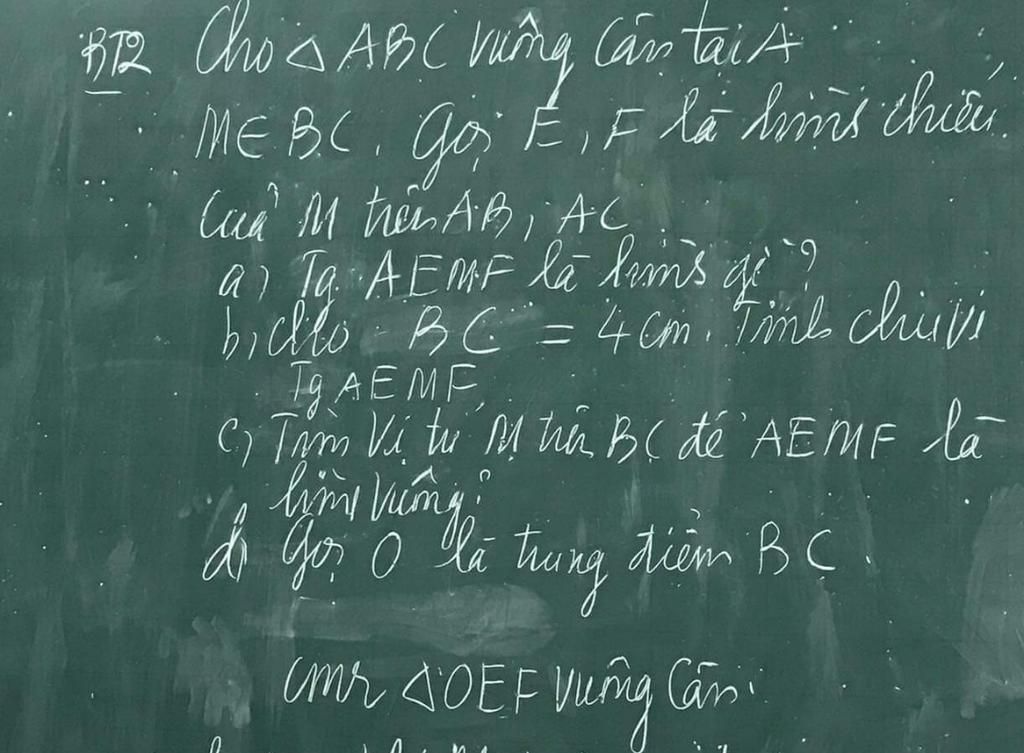 BT2 Cho △ABC vuông cân tại A
M∈BC. Gọi E, F là hình chiếu
của M trên AB, AC
a) Tg AEMF là hình gì?
b) Cho BC = 4cm. Tính chu vi
Tg AEMF
c) Tìm vị trí M trên BC để AEMF là
hình vuông?
d) Gọi O là trung điểm BC.
cmr △OEF vuông cân.